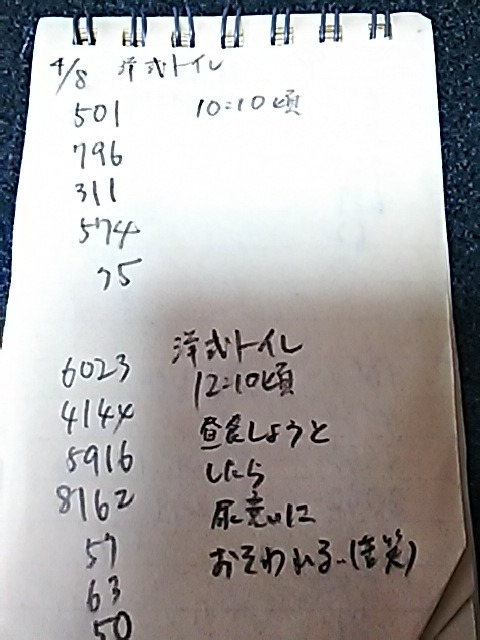 4/8 洋式トイレ
501 10:10頃
796
311
574
75
洋式トイレ
6023 12:10頃
4144 昼食しようと
8916 したら
8162 尿意に
57 おそわれる..(苦笑)
63
50